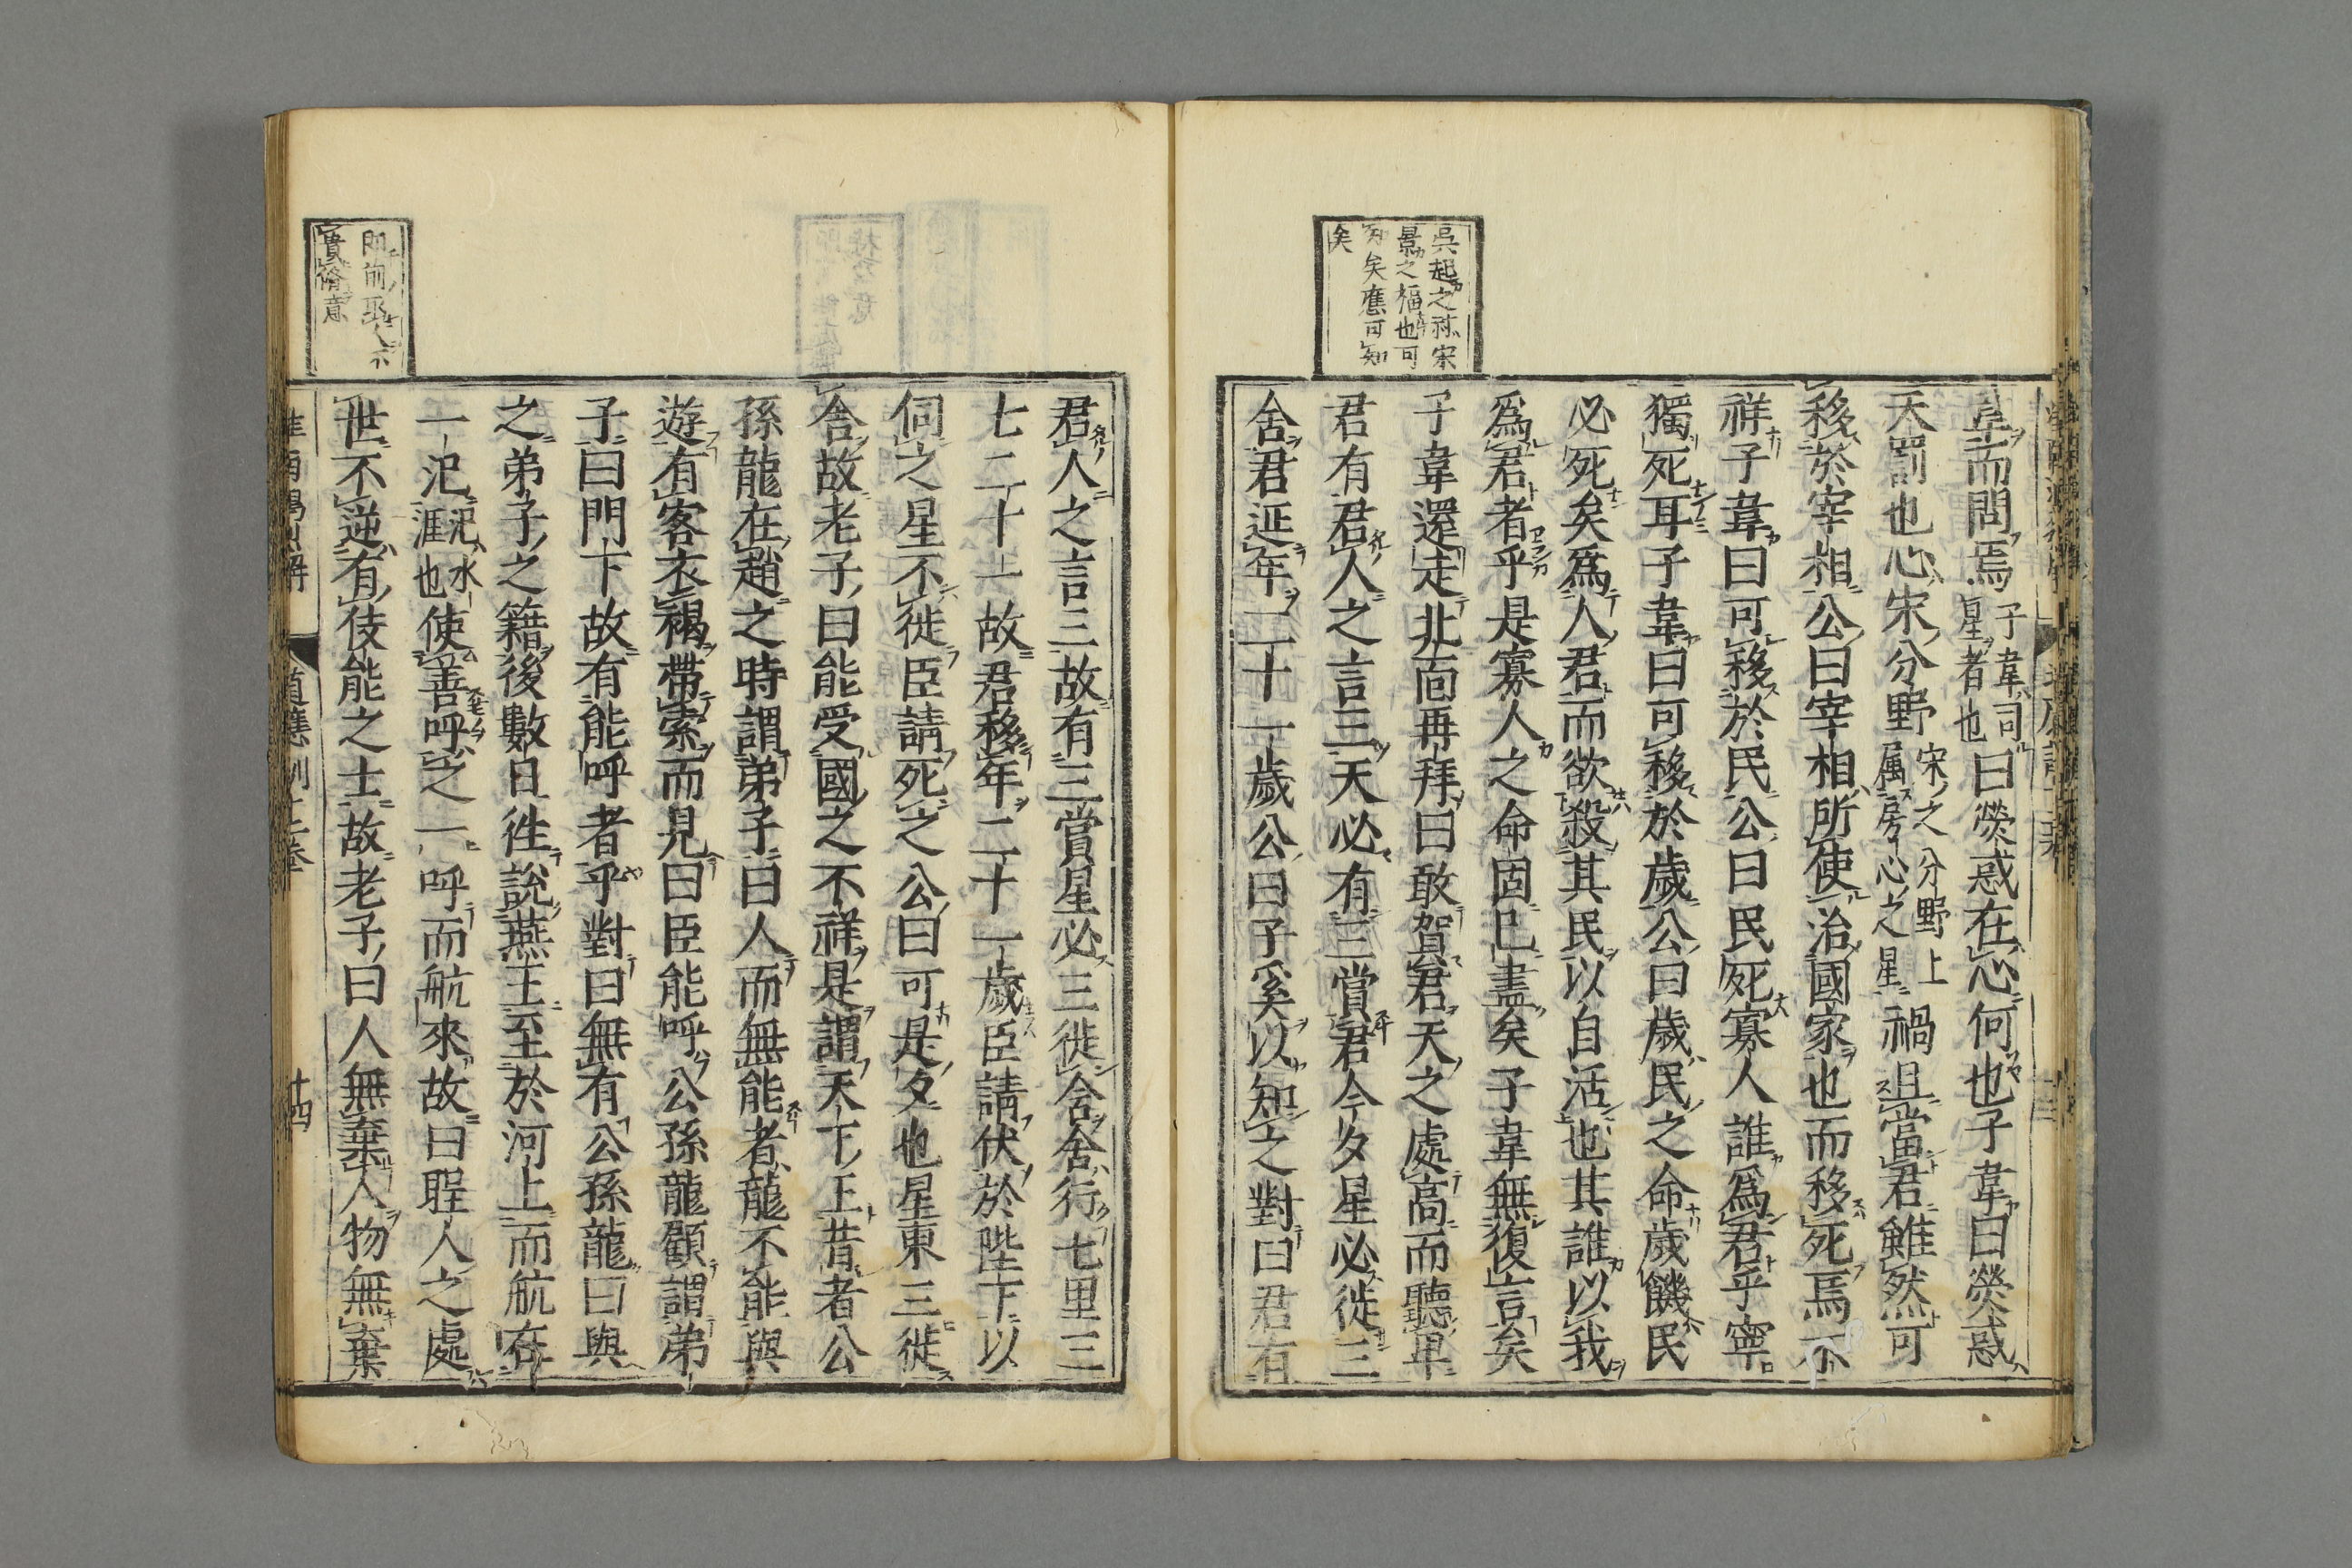 吳起之禍宋
景之福也可
知矣應可知
矣
韋而問焉子韋司星者也曰熒惑在心何也子韋曰熒惑
天罰也心宋分野宋之分野上屬房心之星禍且當君雖然可
移於宰相公曰宰相所使治國家也而移死焉不
祥子韋曰可移於民公曰民死寡人誰爲君乎寧
獨死耳子韋曰可移於歲公曰歲民之命歲饑民
必死矣爲人君而欲殺其民以自活也其誰以我
爲君者乎是寡人之命固已盡矣子韋無復言矣
子韋還走北面再拜曰敢賀君天之處高而聽卑
君有君人之言三天必有三賞君今夕星必徙三
舍君延年二十一歲公曰子奚以知之對曰君有
君人之言三故有三賞星必三徙舍舍行七里三
七二十一故君移年二十一歲臣請伏於陛下以
伺之星不徙臣請死之公曰可是夕也星東三徙
舍故老子曰能受國之不祥是謂天下王昔者公
孫龍在趙之時謂弟子曰人而無能者龍不能與
遊有客衣褐帶索而見曰臣能呼公孫龍顧謂弟
子曰門下故有能呼者乎對曰無有公孫龍曰與
之弟子之籍後數日往說燕王至於河上而航在
一汜汜水涯也使善呼之一呼而航來故曰聖人之處
世不逆有伎能之士故老子曰人無棄人物無棄
道應訓上卷
十四